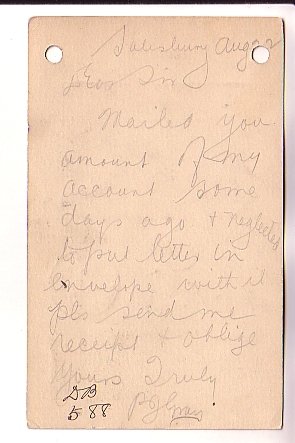 Salisbury Aug 22
Dear Sir
Mailed you
amount of my
account some
days ago + neglected
to put letter in
Envelope with it
pls send me
receipt + oblige
Yours Truly
DB
588